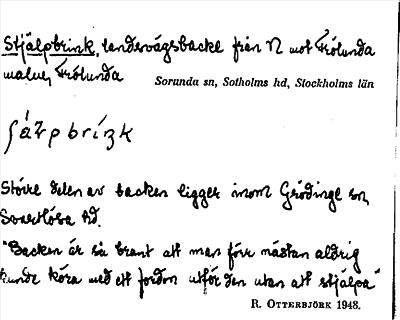 Stjälpbrink, landsvägsbacke från N mot Frölunda
malm, Frölunda
Sorunda sn, Sotholms hd, Stockholms län
Större delen av backen ligger inom Grödinge sn,
Svartlösa hd.
"Backen är så brant att man förr nästan aldrig
kunde köra med ett fordon utför den utan att stjälpa"
R. OTTERBJÖRK 1948.